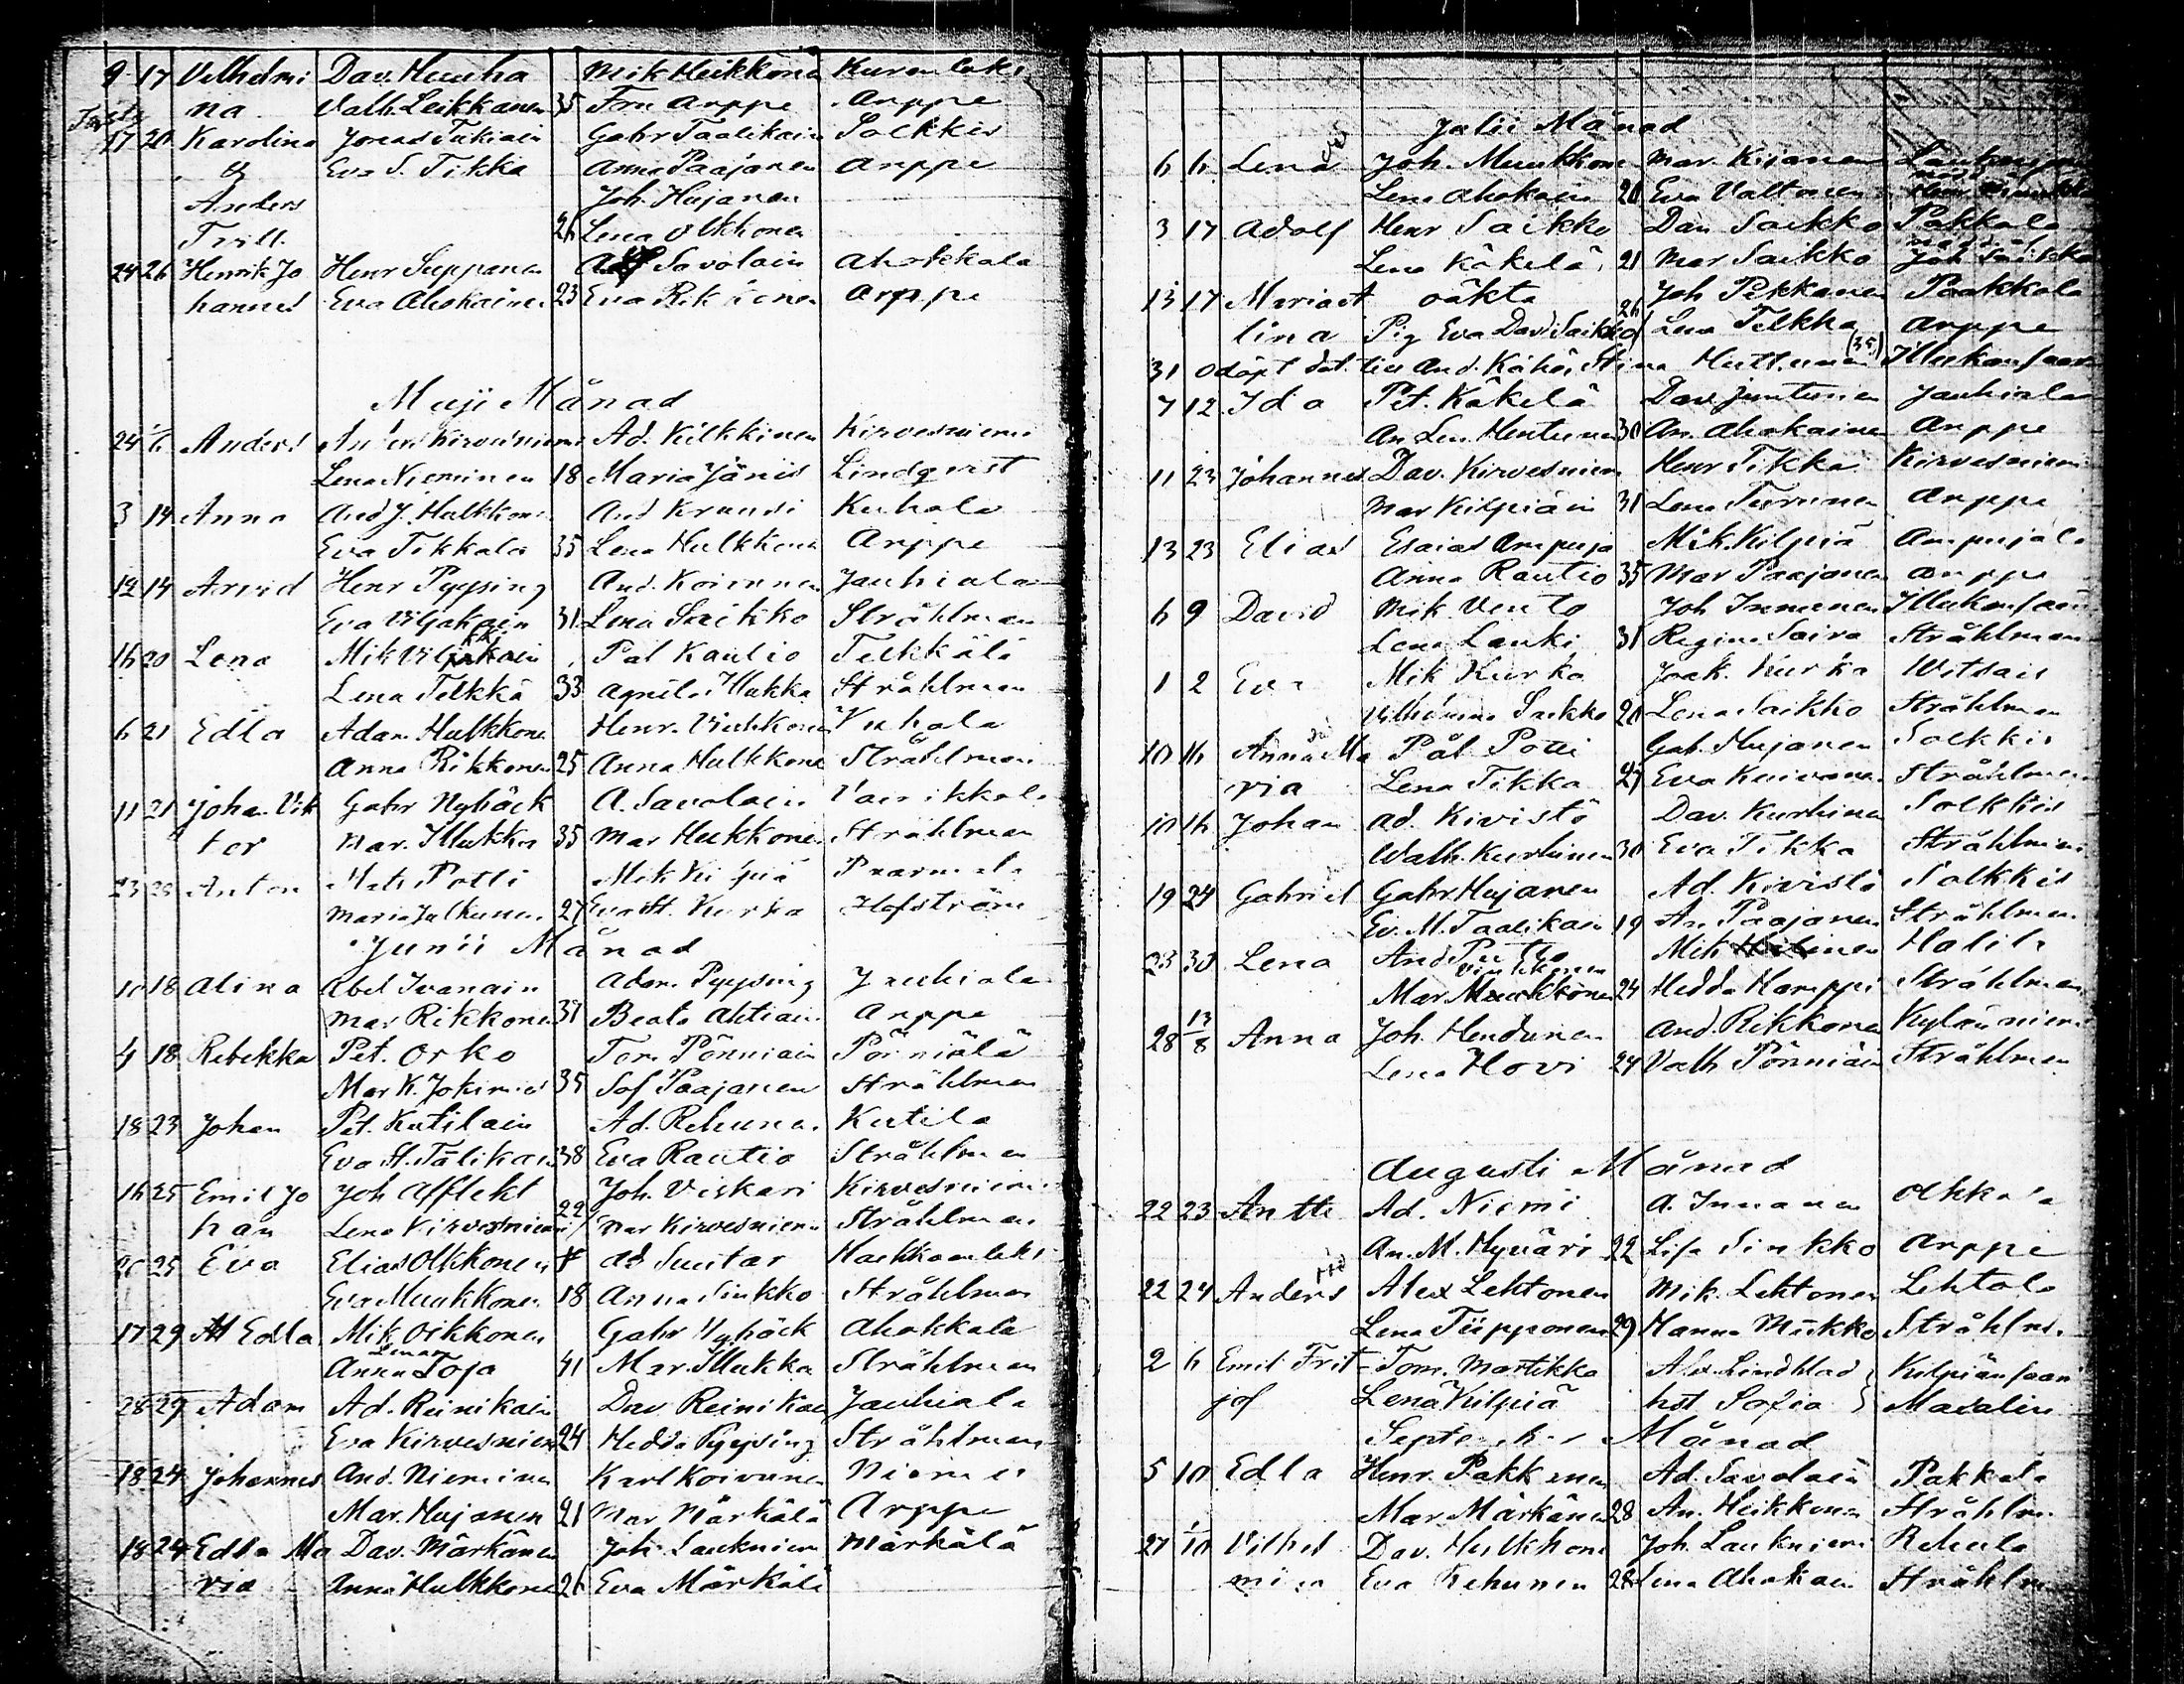 9 17 Vilhelmi Dav. Huuha Mik Heikkone Kurenlaks
na Valb. Leikkanen 35 Tom Arppe Arppe
17 20 Karolina Jonas Tukiain Gabr Taalikain Solkkis
& Eva S. Tikka Anna Paajanen Arppe
Anders Joh. Hujanen
Tvill. 26 Lena Olkkonen
24 26 Henrik Jo Henr Seppanen Savolain Ahokkala
hannes Eva Ahokainen 23 Eva Rikkonen Arppe
Maji Månad
24 6 Anders Anders Kirvesniemi Ad. Kilkkinen Kirvesniemi
Lena Nieminen 18 Maria Jänis Lindqvist
3 14 Anna And J. Hulkkone And Kruusi Kuhala
Eva Tikkala 35 Lena Hulkkone Arppe
12 14 Arvid Henr Pyysing And. Koivunen Jauhiala
Eva Viljakain 31 Lena Saikko Stråhlman
16 20 Lena Mik Pål Rautio Telkkälä
Lena Telkkä 33 Agneta Illukka Stråhlman
6 21 Edla Adam Hulkkone Henr. Kuhala
Anna Rikkonen 25 Anna Hulkkone Stråhlman
11 21 Johan Vik Gabr Nybäck A. Savolain Vainikkala
tor Mar. Illukka 35 Mar Hukkonen Stråhlman
23 28 Anton Mats Potti Mik Kilpiä
Maria Julkunen 27 Eva St. Kurka Hofström
Junii Månad
10 18 Alina Abel Ivanain Adam Pyysing Jauhiala
Mar Rikkonen 37 Beata Ahtiain Arppe
4 18 Rebekka Pet. Orko Tom Pönniäin Pönniälä
Mar K. Jokimies 35 Sof Paajanen Stråhlman
18 23 Johan Pet. Kutilain Ad. Rehunen Kutila
Eva St. Tälikain 38 Eva Rautio Stråhlman
16 25 Emil Jo Joh Afflekt Joh. Viskari Kirvesniemi
han Lena Kirvesniemi 22 Mar Kirvesniemi Stråhlman
20 25 Eva Elias Olkkonen Ad Suutar
Eva Muukkonen 18 Anna Sinkko Stråhlman
17 29 Edla Mik Oikkonen Gabr Nybäck Ahokkala
Anna Toja 41 Mar. Illukka Stråhlman
28 29 Adam Ad. Reinikain Dav Reinikai Jauhiala
Eva Kirvesniem 24 Hedda Pyysing Stråhlman
18 24 Johannes And. Nieminen Karl Koivunen Niemis
Mar. Hujanen 21 Mar Märkälä Arppe
18 24 Edla Ma Dav. Märkänen Joh. Lauknien Märkälä
ria Anna Hulkkone 26 Eva Märkälä
Julii Månad
6 6 Lena Joh. Muukkone Mar. Kijanen
Lena Ahokain 20 Eva Valtonen
3 17 Adolf Henr Saikko Dan Saikko Pakkala
Lena Käkelä 21 Mar Saikko Joh Saikko
13 17 Maria A oäkta 26 Joh Pekkanen Pakkala
lina Pig Eva Dav. Saikko Lena Telkka Arppe
31 odöpt dot. till And. Kähäi, Stina Huttunen (35) Illukansaari
7 12 Ida Pet. Käkelä Dav. Juntunen Jauhiala
An. Len. Hentunen 30 An. Ahokainen Arppe
11 23 Johannes Dav. Kirvesniem Henr Tikka Kirvesniemi
Mar Kilpiäin 31 Lena Turunen Arppe
13 23 Elias Esaias Ampuja Mik. Kilpiä Ampujala
Anna Rautio 35 Mar Paajanen Arppe
6 9 David Mik Vento Joh Inmanen Illukansaari
Lena Lauki 31 Regina Saira Stråhlman
1 2 Eva Mik Kurko Joak. Kurko Witsais
Vilhelmina Saikko 20 Lena Saikko Stråhlman
10 16 Anna Ma Pål Potti Gab. Hujanen Solkkis
ria Lena Tikka 27 Eva Kaivonen Stråhlman
10 16 Johan Ad. Kivistö Dav. Kurhinen Solkkis
Walb. Kurhinen 30 Eva Tikka Stråhlman
19 24 Gabriel Gabr Hujanen Ad. Kivistö Solkkis
Ev. M. Taalikain 19 An Paajanen Stråhlman
23 30 Lena And Mik Halila
Mar. Muukkonen 24 Hedda Kamppi Stråhlman
28 13/8 Anna Joh. Hendunen And. Rikkonen Kylänniemi
Lena Hovi 24 Valb Pönniäin Stråhlman
Augusti Månad
22 23 Antti Ad. Niemi A. Inmanen Olkkala
An. M. Hyväri 22 Lisa Sinkko Arppe
22 24 Anders Alex Lehtonen Mik. Lehtonen Lehtola
Lena Tiipponen 29 Hanna Mukko Stråhlm.
2 6 Emil Frit Tom. Martikka Alex. Lindblad Kilpiänsaari
jof Lena Kilpiä hst Sofia Masalin
September Månad
5 10 Edla Henr. Pakkanen Ad. Savolain Pakkala
Mar. Märkänen 28 An. Heikkonen Stråhlm.
27 1/10 Vilhel Dav. Hulkkone Joh. Lauknieni Rehula
mina Eva Rehunen 28 Lena Ahokain Stråhlm